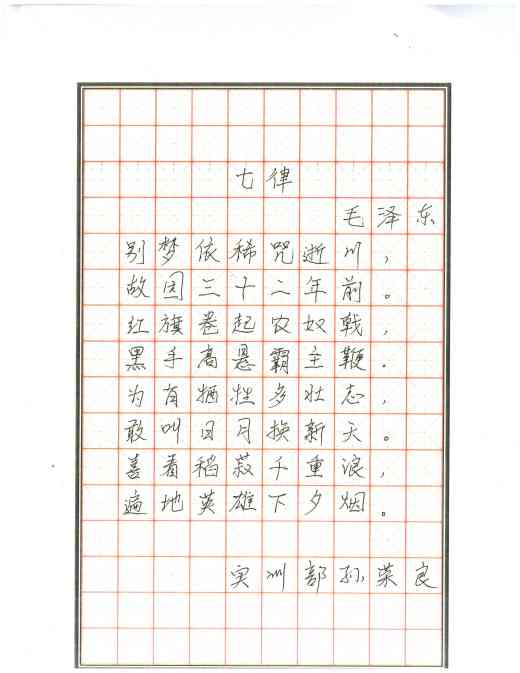 七律
毛泽东
别梦依稀咒逝川，
故园三十二年前。
红旗卷起农奴戟，
黑手高悬霸主鞭.
为有牺牲多壮志，
敢叫日月换新天。
喜看稻菽千重浪，
遍地英雄下夕烟。
实训部孙荣良